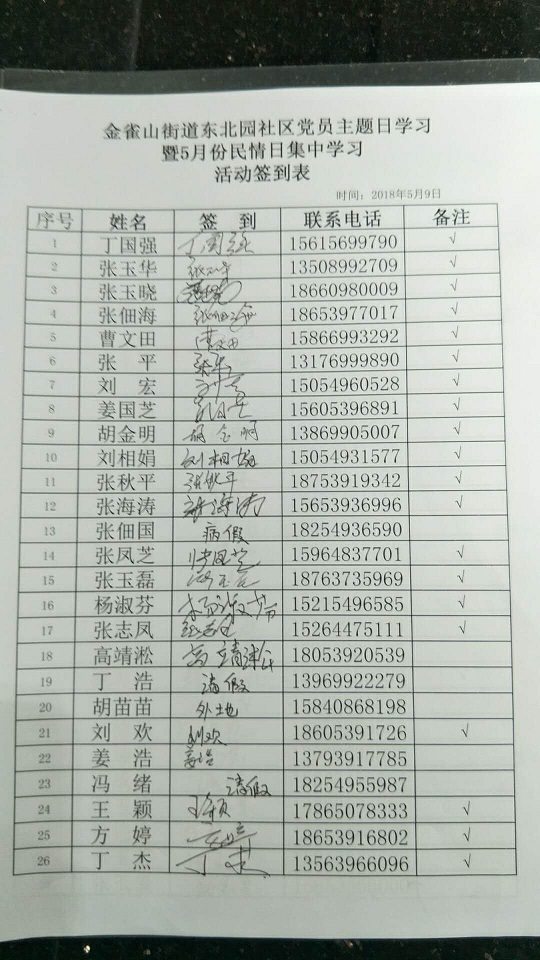 金雀山街道东北园社区党员主题日学习
暨5月份民情日集中学习
活动签到表
时间：2018年5月9日
序号 姓名 签 到 联系电话 备注
1 丁国强 丁国强 15615699790 √
2 张玉华 张玉华 13508992709 √
3 张玉晓 18660980009 √
4 张佃海 张佃海 18653977017 √
5 曹文田 曹文田 15866993292 √
6 张 平 张平 13176999890 √
7 刘 宏 15054960528 √
8 姜国芝 姜国芝 15605396891 √
9 胡金明 胡金明 13869905007 √
10 刘相娟 刘相娟 15054931577 √
11 张秋平 张秋平 18753919342 √
12 张海涛 张海涛 15653936996 √
13 张佃国 病假 18254936590
14 张凤芝 张凤芝 15964837701 √
15 张玉磊 18763735969 √
16 杨淑芬 杨淑芬 15215496585 √
17 张志凤 15264475111 √
18 高靖淞 高靖淞 18053920539
19 丁 浩 请假 13969922279
20 胡苗苗 外地 15840868198
21 刘 欢 刘欢 18605391726 √
22 姜 浩 姜浩 13793917785
23 冯 绪 请假 18254955987
24 王 颖 王颖 17865078333 √
25 方 婷 方婷 18653916802 √
26 丁 杰 丁杰 13563966096 √